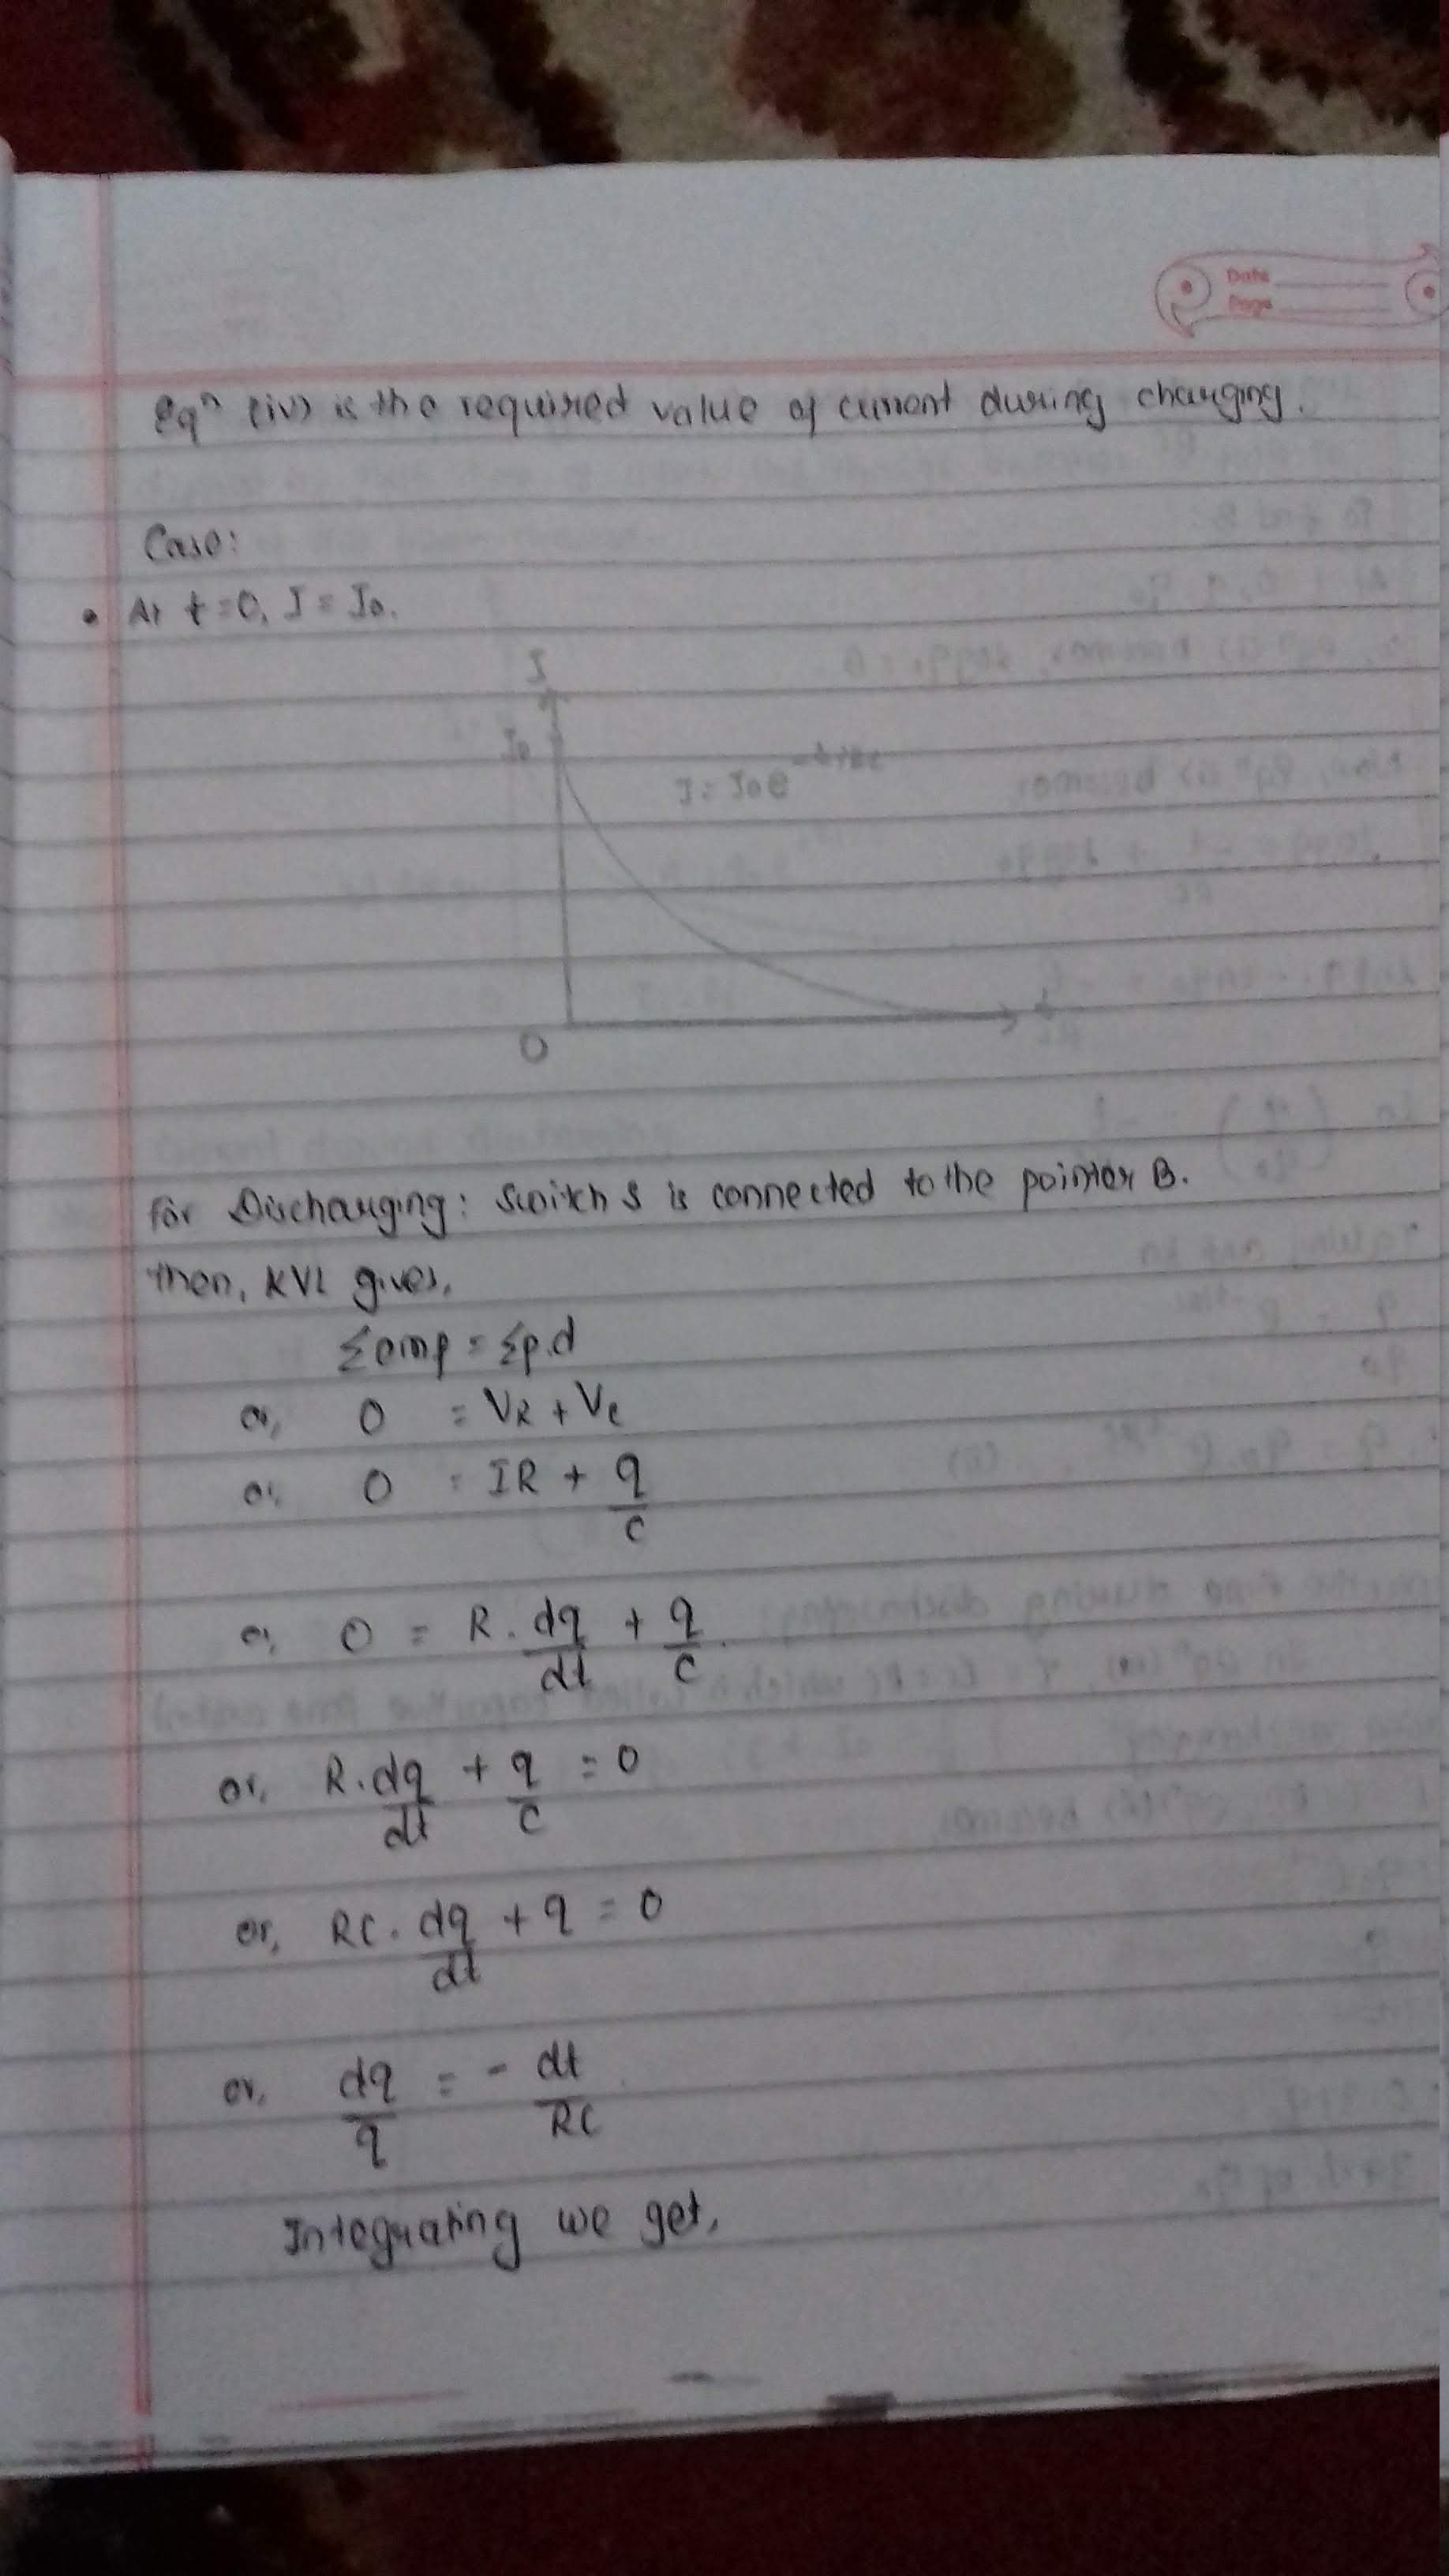 Date
Page
Eqⁿ (iv) is the required value of current during charging.
Case:
• At t=0, I = I₀.
I
I₀
I = I₀e^-t/RC
t
O
For Discharging: Switch S is connected to the pointer B.
then, KVL gives,
Σemf = Σp.d
or, 0 = VR + Vc
or, 0 = IR + q/C
or, 0 = R. dq/dt + q/C.
or, R. dq/dt + q/C = 0
or, RC. dq/dt + q = 0
or, dq/q = - dt/RC
Integrating we get,